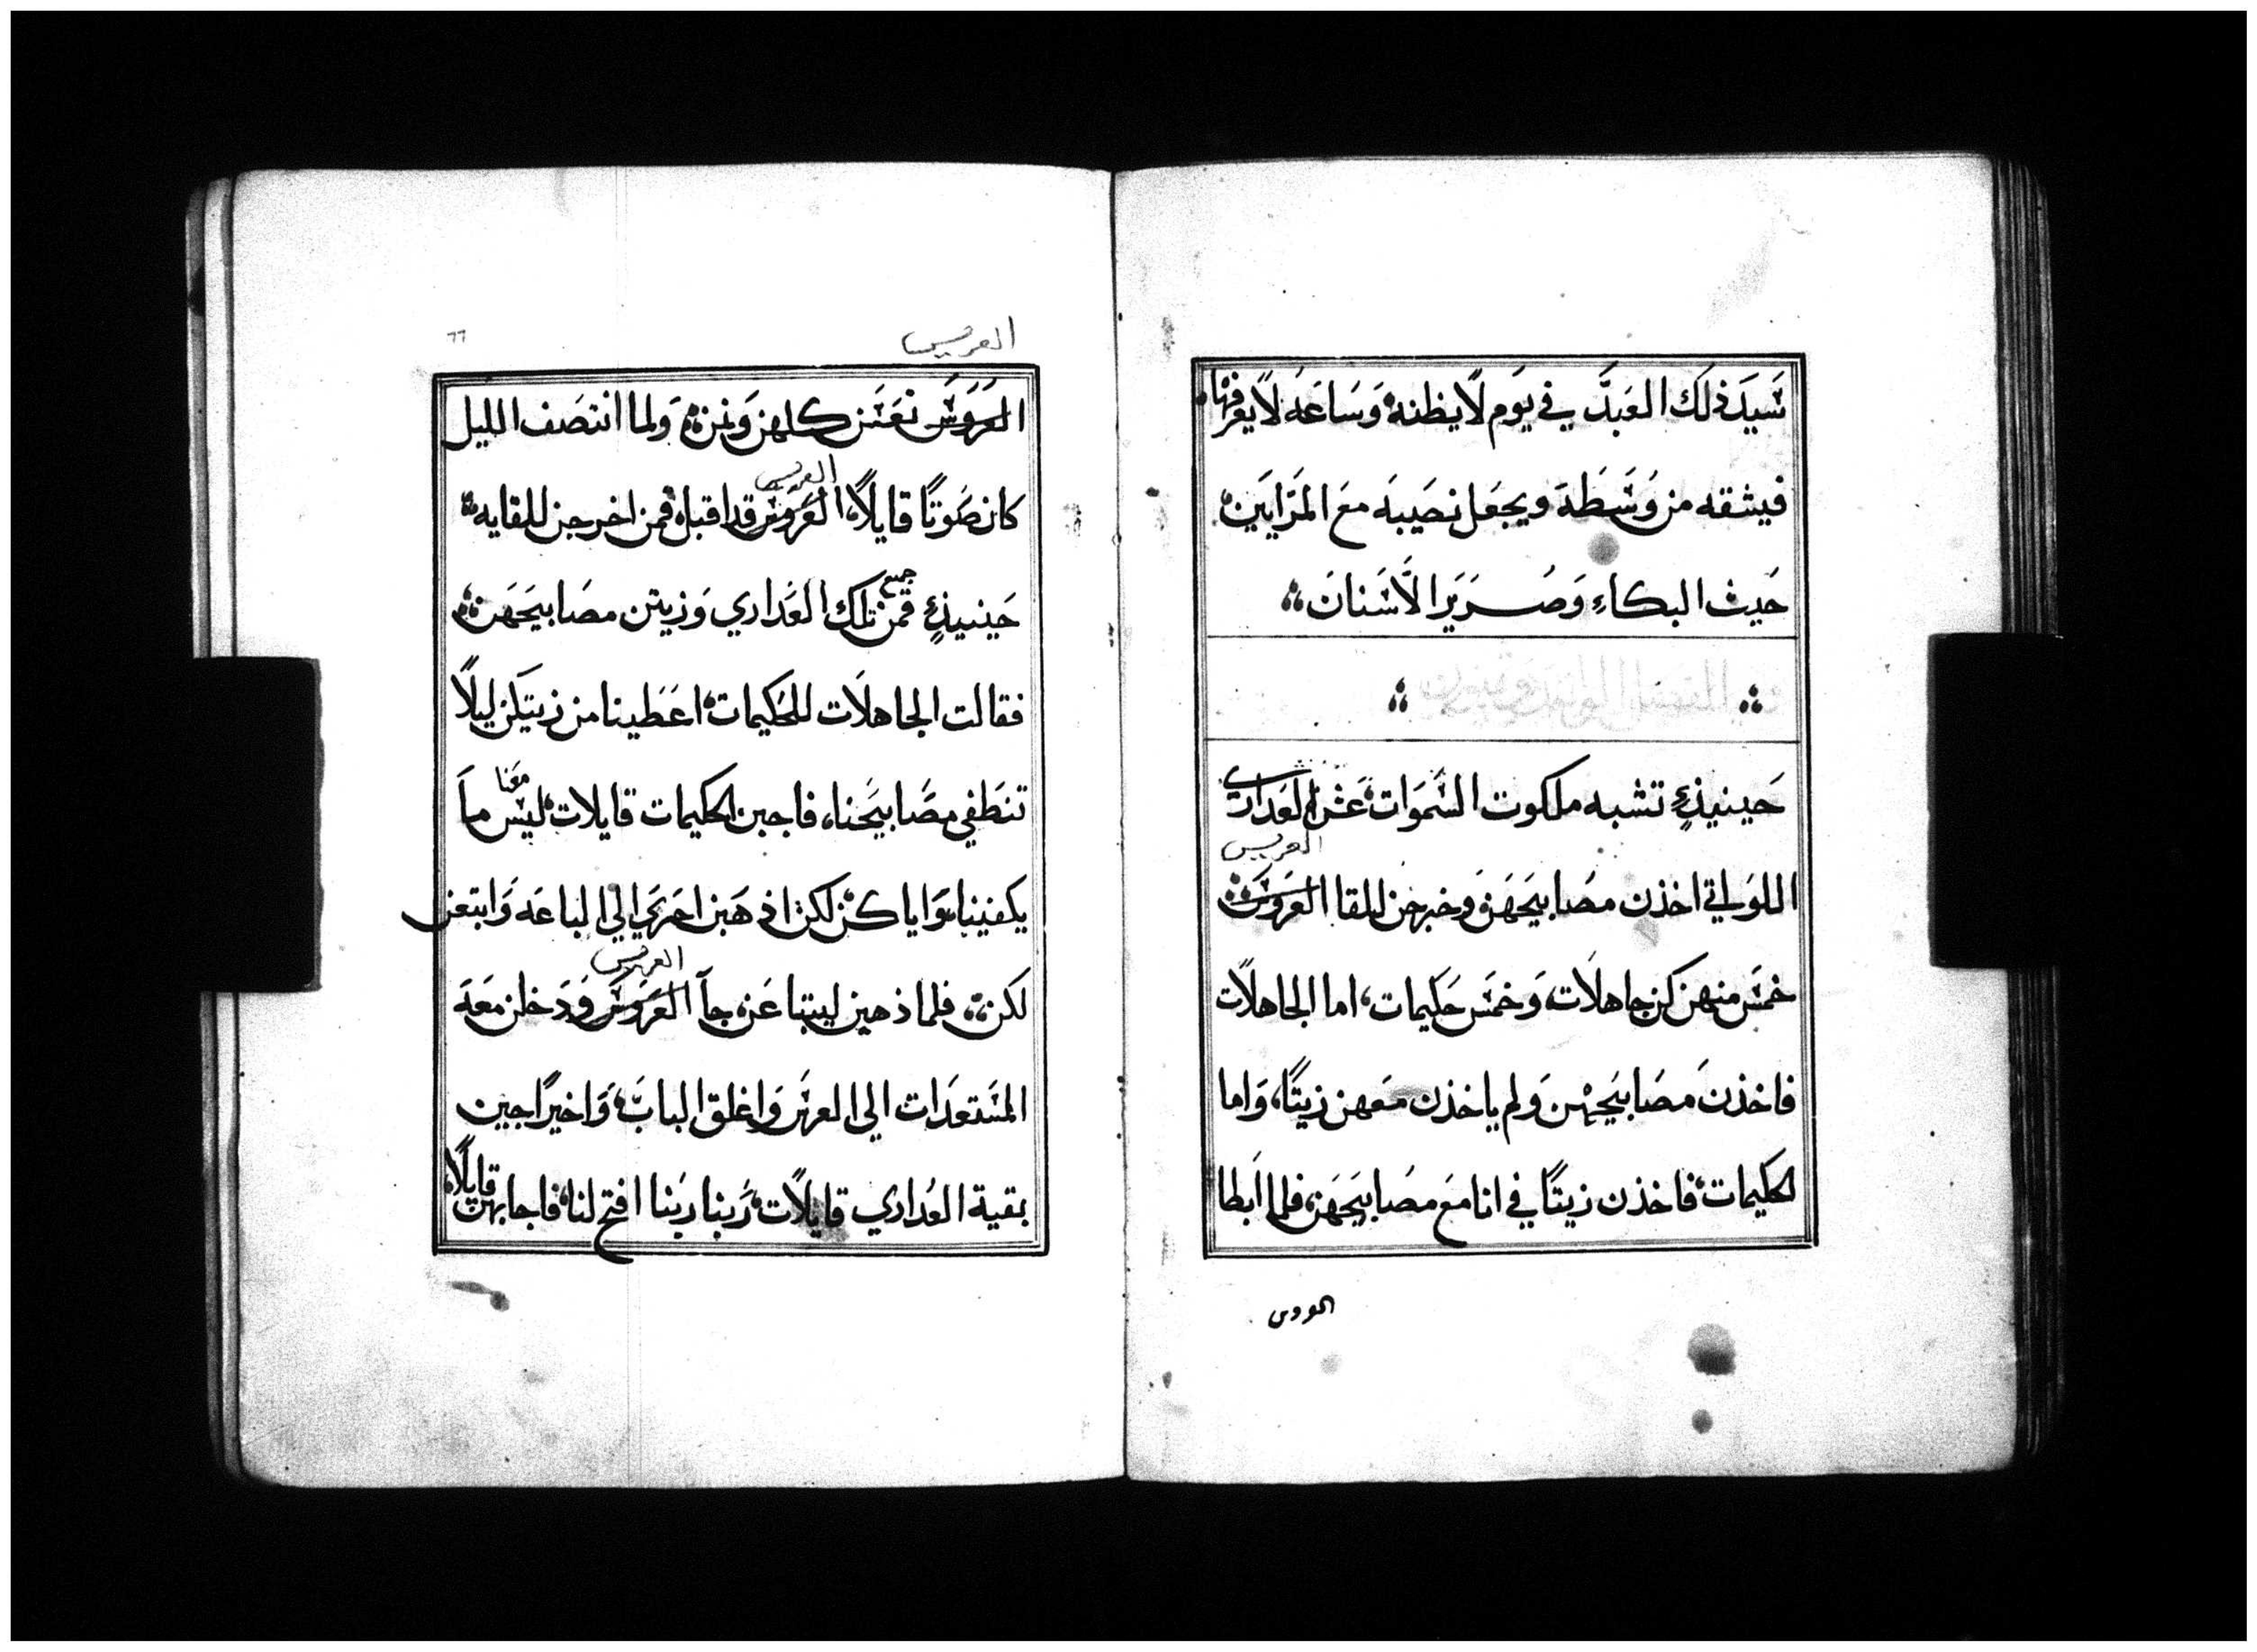 سَيدَ ذلك العَبدَّ في يوَم لاَ يظنه وَسَاعَة لاَ يعرفهَا
فيشقه من وَسَطهَ ويجعَل نصَيبهَ معَ المَرَايَين
حَيث البكاءِ وَصُرَير الاَسَنانَ
حَينيذٍ تشبه ملكوت السَمَوَات عَشر العَدَارى
العريس
اللوَاتي اخذن مصَابيَحَهَن وَخرجَن للقا العَروس
خمسَ منهن كن جاهلاَت وَخمسَ حَكيمات اما الجاهلاَت
فاخذنَ مصَابيَحهن وَلم ياخذن مَعهن زيتًا وَاما
الحكيمات فاخذن زيتًا في انا معَ مصَابيَحهَن فلما اَبطا
العروس
العريس
٦٦
العَرَوسَ نعَسَن كلهن وَنمن وَلما انتصَف الليل
العريس
كان صَوتًا قايلاً العَرَوس قد اقبل قمن اخرجن للقايه
جميع
حَينيذٍ قمن تلك العَدَاري وَزين مصَابيحَهَن
فقالت الجاهلاَت للحَكيمات اعَطَينا من زيتكن ليلاً
تنطَفي مصَابيَحنا فاجبن الحكيمات قايلات ليسَ مَعَنا مَا
يكفينا وَاياكن لكن اذهَبن احَرَي الي الباعَه وَابتعن
العريس
لكن فلما ذهبن ليبتاعَن جآ العَرَوسَ وَدَخلن معَهَ
المَسَتعَدَات الي العرسَ وَاغلق البابَ وَاخيرًا جين
بقية العدَاري قايلاَت رَبنا ربَنا افتح لنا فاجابهن قايلاً